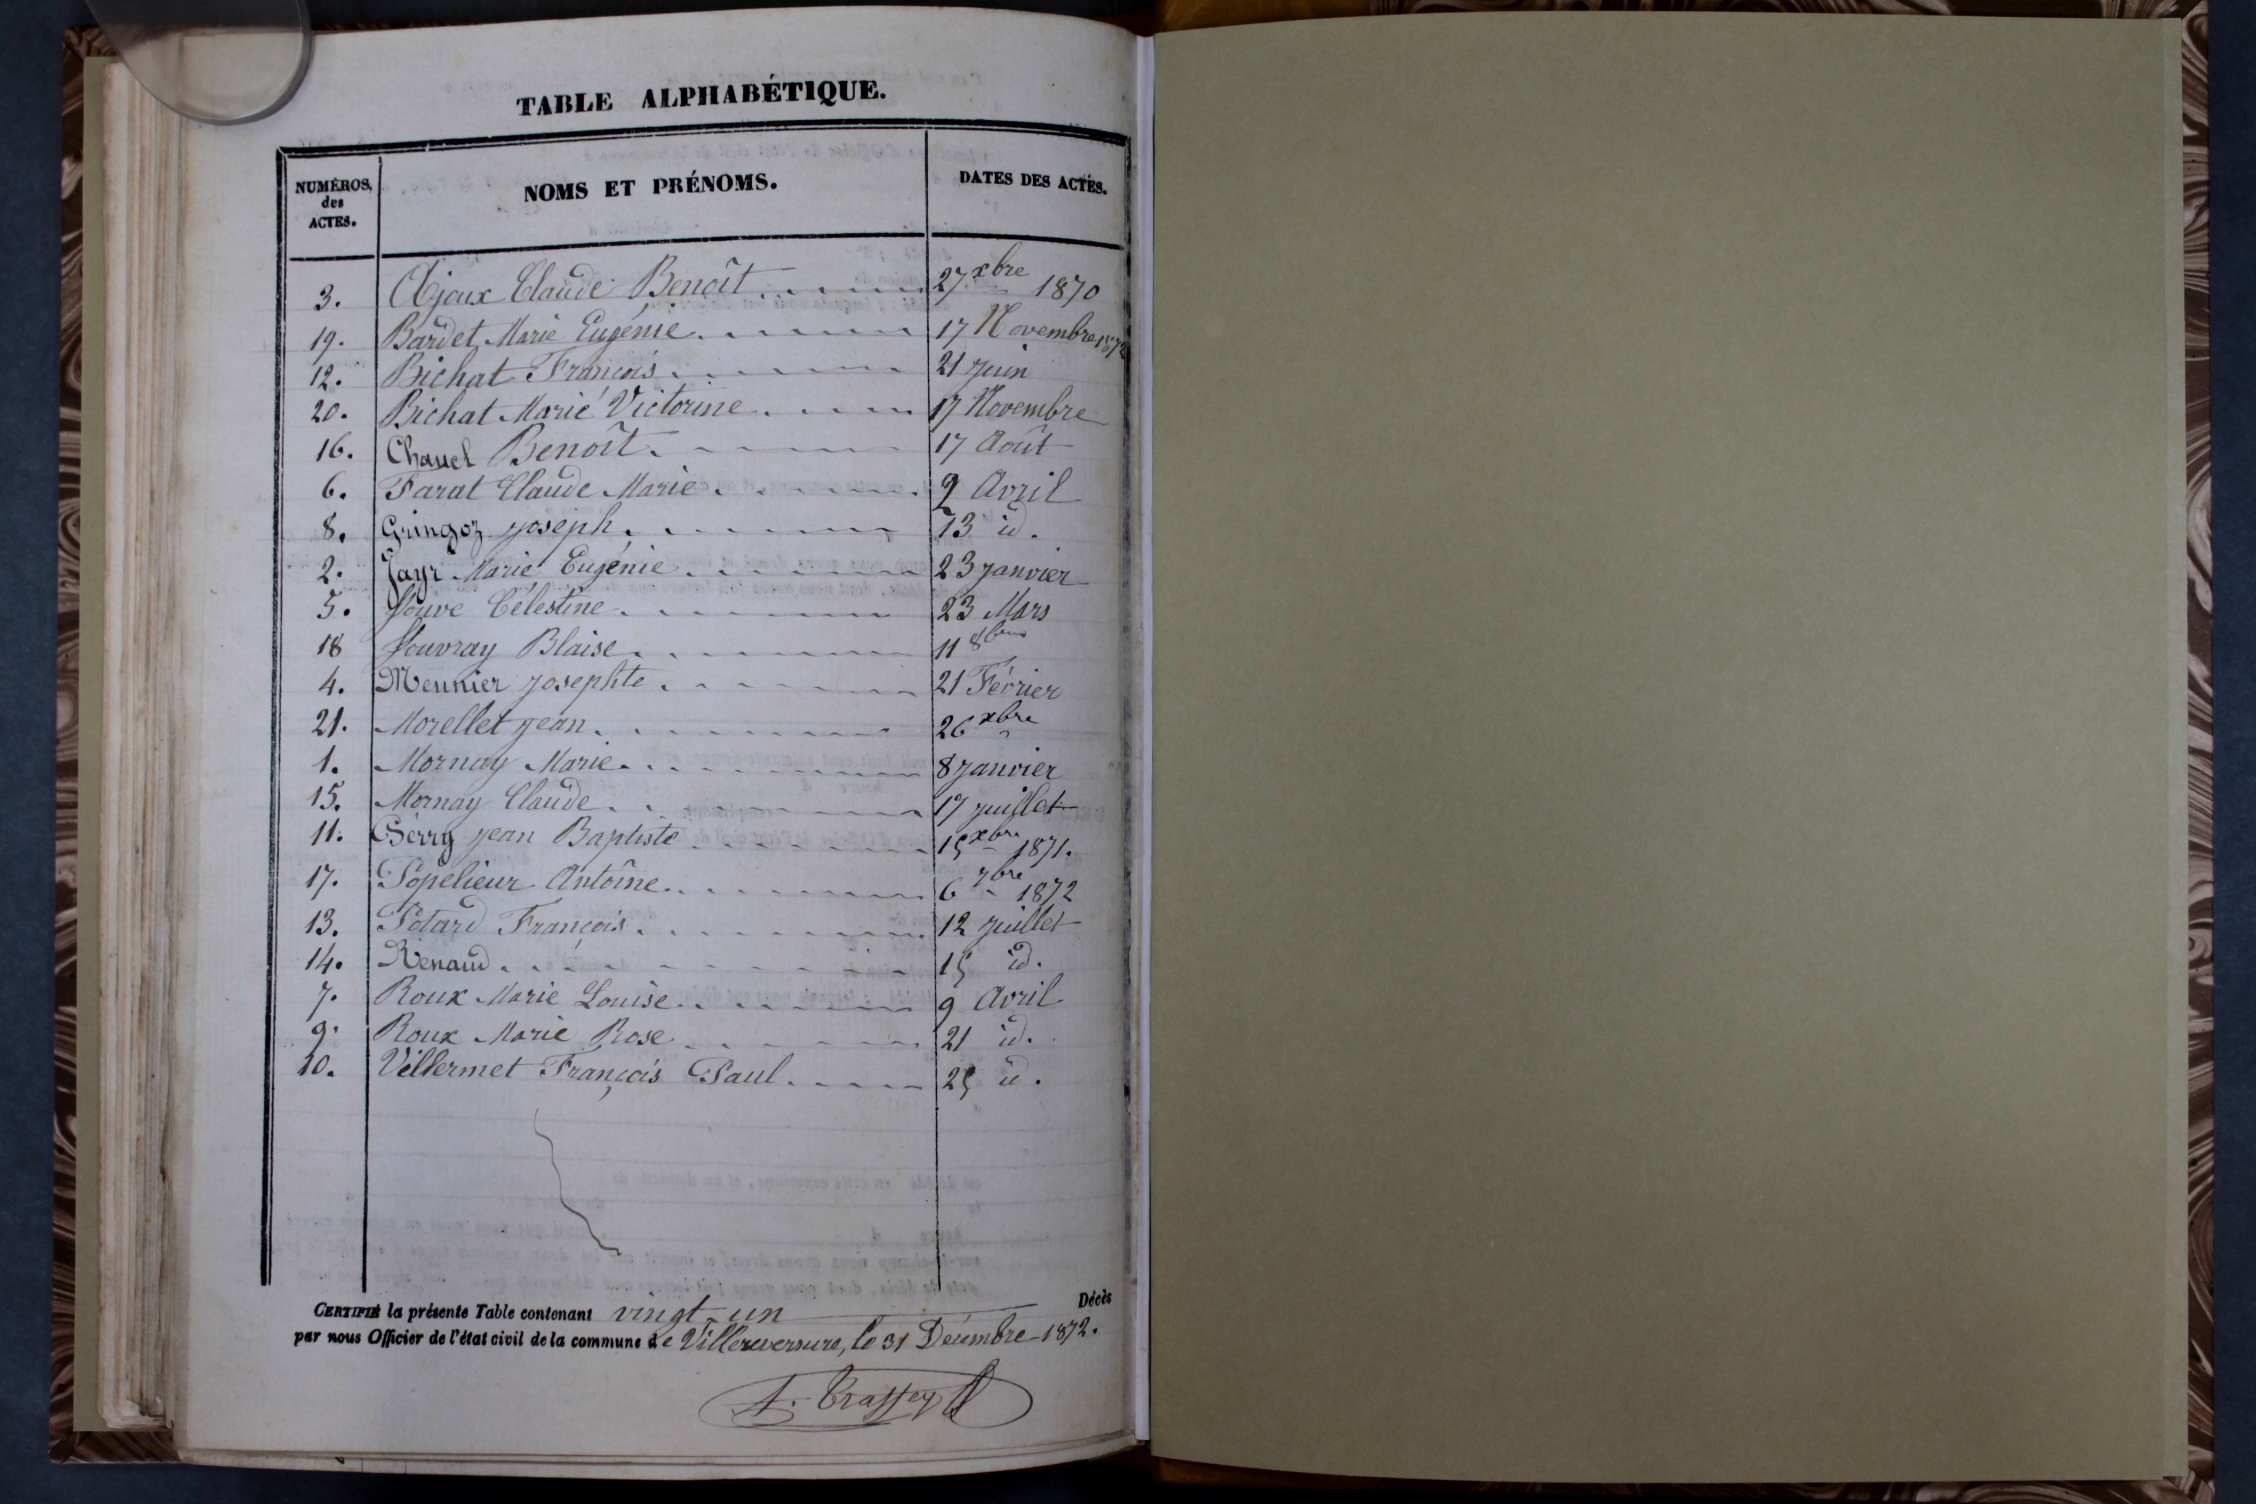 TABLE ALPHABÉTIQUE.
NUMÉROS, des ACTES. NOMS ET PRÉNOMS. DATES DES ACTES.
3. Ajoux Claude Benoît 27 xbre 1870
19. Bardet Marie Eugénie 17 Novembre 1872
12. Bichat François 21 Juin
20. Bichat Marie Victorine 17 Novembre
16. Chanel Benoît 17 Août
6. Farat Claude Marie 2 Avril
8. Gringoz Joseph 13 id.
2. Jayr Marie Eugénie 23 Janvier
5. Jouve Célestine 23 Mars
18 Jouvray Blaise 11 8bre
4. Meunier Josephte 21 Février
21. Morellet Jean 26 xbre
1. Mornay Marie 8 Janvier
15. Mornay Claude 17 Juillet
11. Perry Jean Baptiste 15 xbre 1871.
17. Popelieur Antoine 6 7bre 1872
13. Potard François 12 Juillet
14. Renaud 15 id.
7. Roux Marie Louise 9 Avril
9. Roux Marie Rose 21 id.
10. Villermet François Paul 25 id.
CERTIFIÉ la présente Table contenant vingt-un Décès
par nous Officier de l'état civil de la commune de Villereversure, le 31 Décembre 1872.